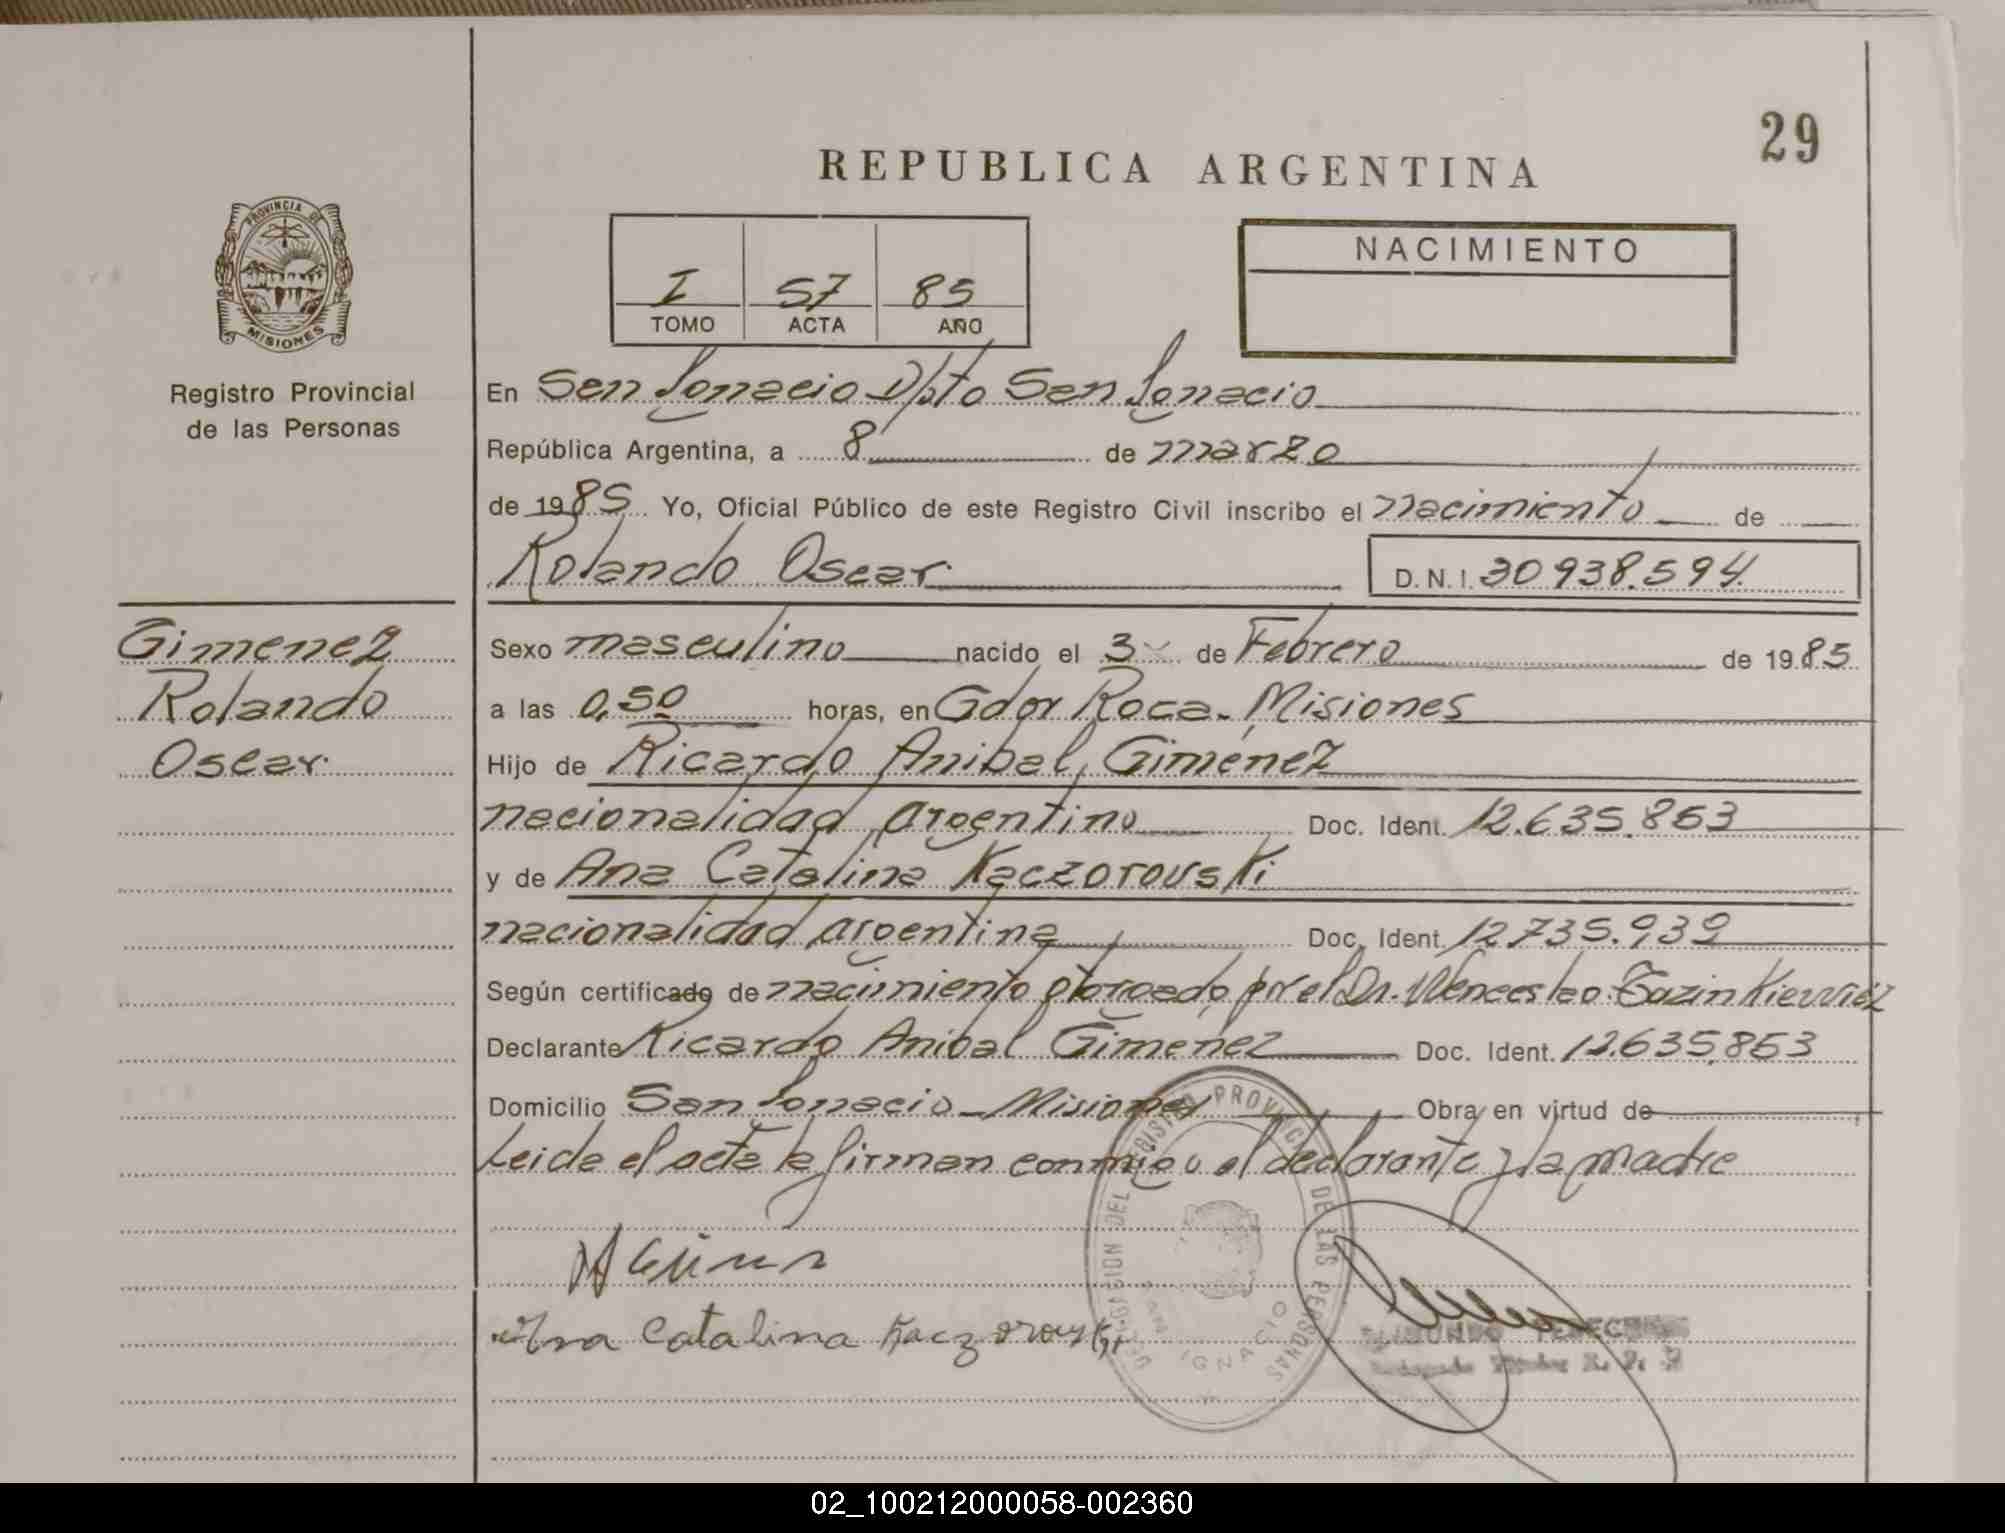 29
REPUBLICA ARGENTINA
PROVINCIA DE
MISIONES
Registro Provincial
de las Personas
I 57 85
TOMO ACTA AÑO
NACIMIENTO
En San Ignacio Dpto San Ignacio
República Argentina, a 8 de marzo
de 1985 Yo, Oficial Público de este Registro Civil inscribo el nacimiento de
Rolando Oscar D.N.I. 30938.594
Gimenez
Rolando
Oscar
Sexo masculino nacido el 3 de Febrero de 1985
a las 0,50 horas, en Gdor Roca - Misiones
Hijo de Ricardo Anibal Giménez
nacionalidad argentino Doc. Ident. 12.635.853
y de Ana Catalina Kaczorouski
nacionalidad argentina Doc. Ident. 12.735.939
Según certificado de nacimiento otorgado por el Dr. Wenceslao
Declarante Ricardo Anibal Giménez Doc. Ident. 12.635.853
Domicilio San Ignacio - Misiones Obra en virtud de
Leida el acta la firman conmigo el declarante y la madre
Ana Catalina Kaczorouski
DELEGACION DEL REGISTRO PROVINCIAL DE LAS PERSONAS
SAN IGNACIO
02_100212000058-002360